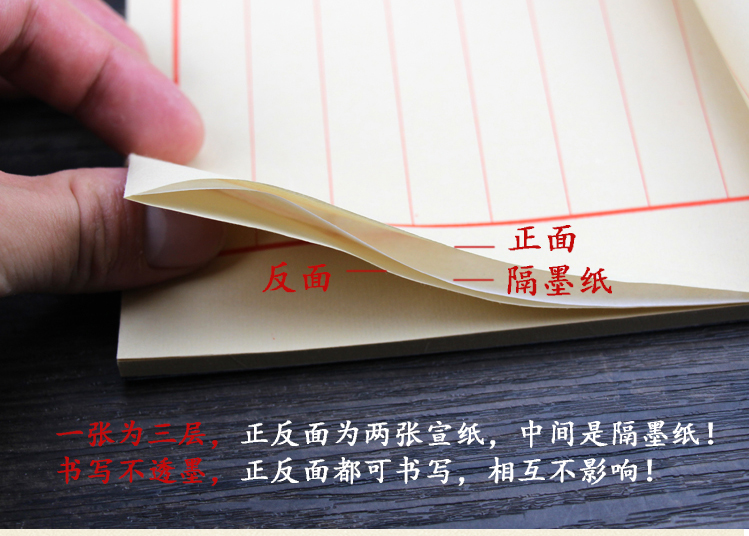 正面
反面
隔墨纸
一张为三层，正反面为两张宣纸，中间是隔墨纸！
书写不透墨，正反面都可书写，相互不影响！